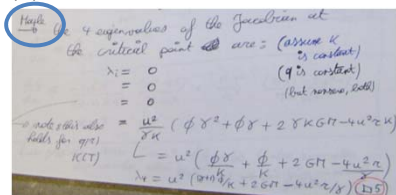 Maple → the 4 eigenvalues of the Jacobian at
the critical point are: (assume K
is constant)
λi = 0 (q is constant)
= 0 (but nonzero, both)
= 0
note this also holds for q(τ) K(τ)
= u²/γK (φγ² + φγ + 2γKGM - 4u²rK
= u² (φγ/K + φ/K + 2GM - 4u²r
λ4 = u² ( φ/K + 2GM - 4u²r/γ) (1.5)